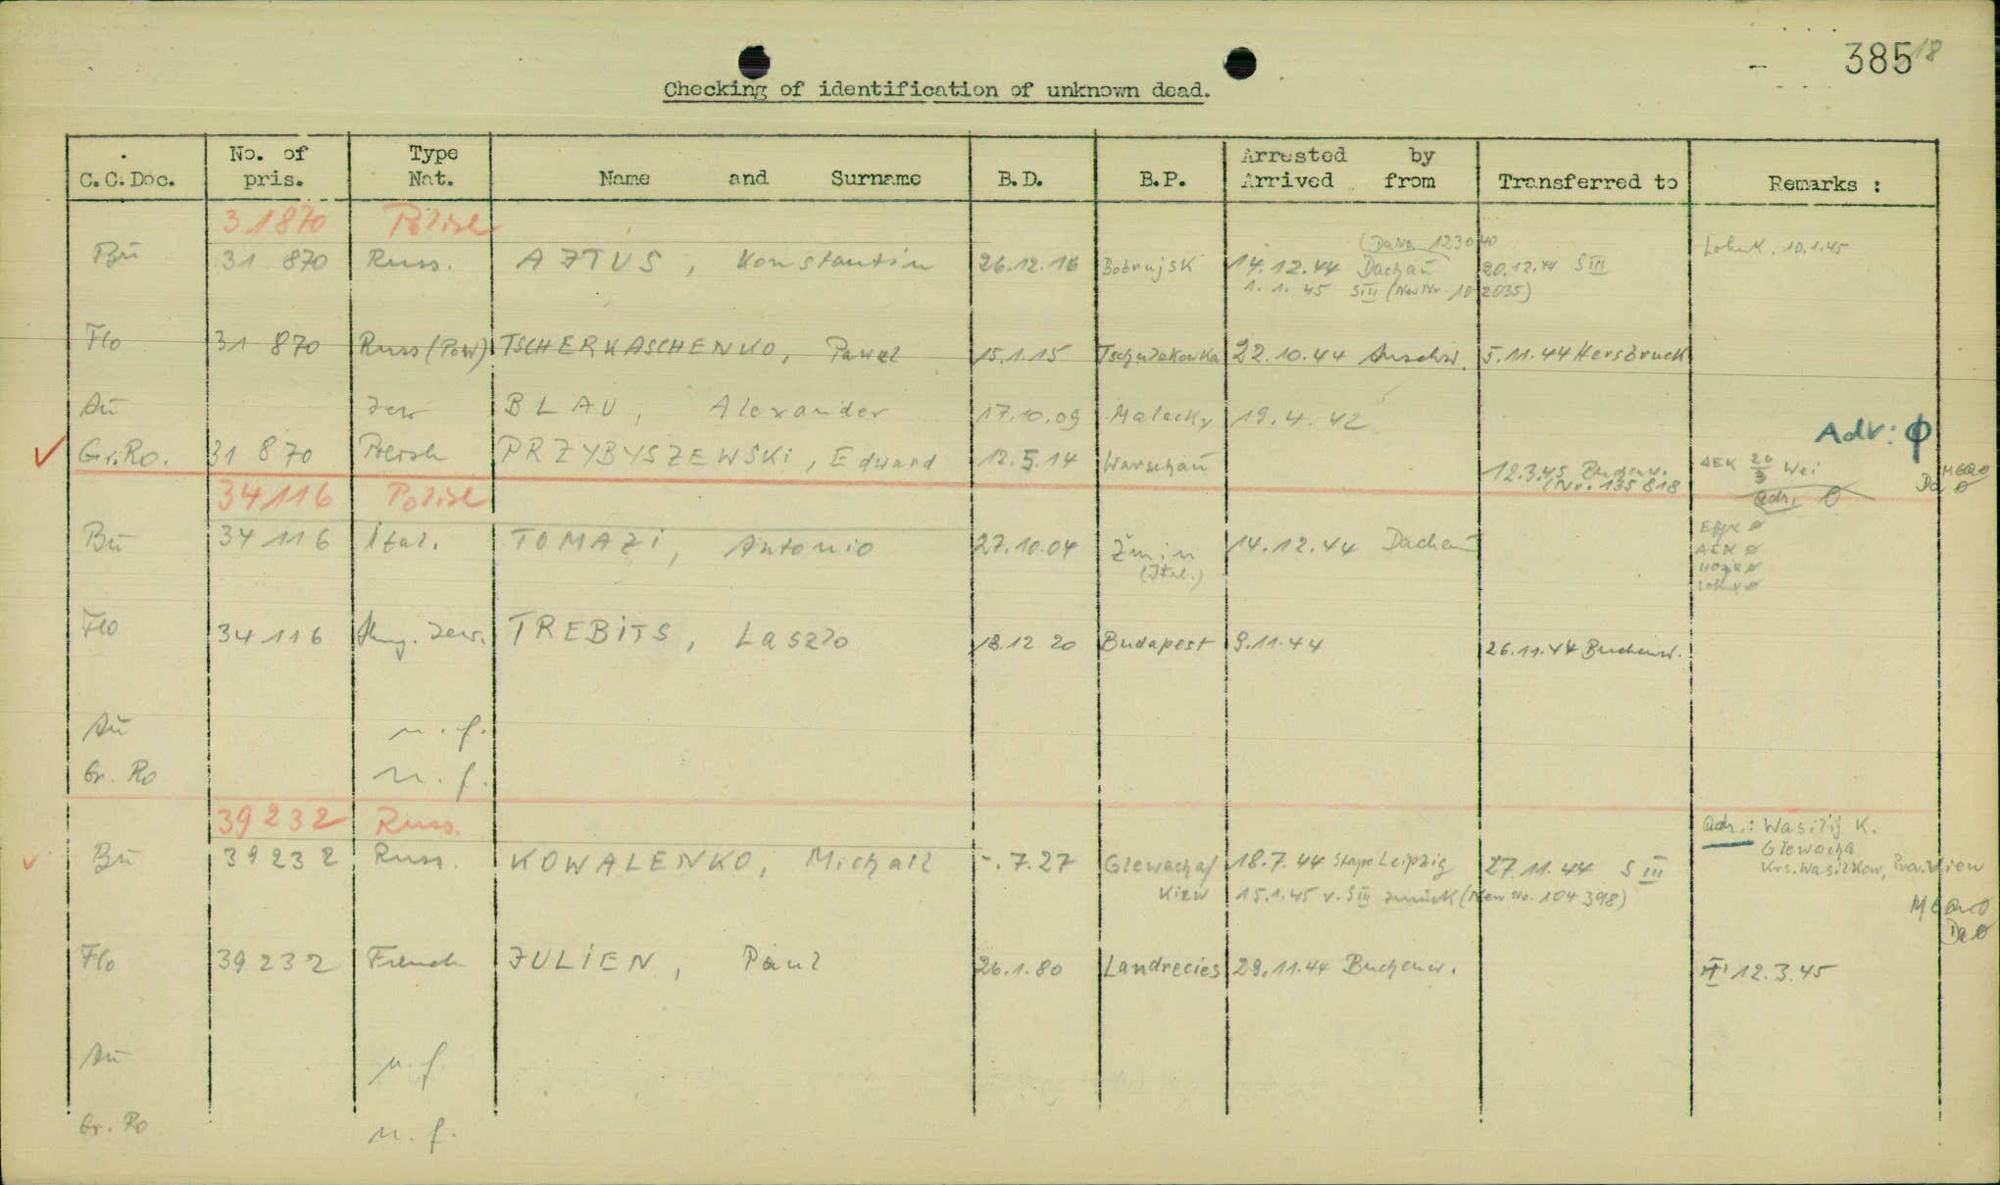 385 18
Checking of identification of unknown dead.
C.C.Doc. No. of pris. Type Nat. Name and Surname B.D. B.P. Arrested by Arrived from Transferred to Remarks :
31870 Polish
(Dachau 123040
Bu 31 870 Russ. AJTUS, Konstantin 26.12.16 Bobrujsk 14.12.44 Dachau 20.12.44 S III Lohnk. 10.1.45
1. 1. 45 S III (New Nr. 102035)
Flo 31 870 Russ (PoW) TSCHERKASCHENKO, Pawel 15.1.15 22.10.44 5.11.44 Hersbruck
Au Jew BLAU, Alexander 17.10.09 Malacky 19.4.42
Adr: φ
Gr.Ro. 31 870 Polish PRZYBYSZEWSKI, Edward 12.5.14 Warschau 12.3.45 Buchenw. AEK 26/3 Wei
(Nr. 135818 Adr, Ø
34116 Polish
Bu 34 116 Ital. TOMAZI, Antonio 27.10.04 Žmin 14.12.44 Dachau Effk ø
(Ital.) AEK ø
Lohnk ø
Flo 34 116 Hung. Jew. TREBITS, Laszlo 18.12 20 Budapest 9.11.44 26.11.44 Buchenw.
Au n.f.
Gr. Ro n.f.
39232 Russ. Adr.: Wasilij K.
Glewacha
Bu 39232 Russ. KOWALENKO, Michail -.7.27 Glewacha/ 18.7.44 Stapo Leipzig 27.11.44 S III Krs. Wasilkow, Kiew
Kiew 15.1.45 v. S III zurück (New No. 104 398)
Flo 39232 French JULIEN, Paul 26.1.80 Landrecies 29.11.44 Buchenw. 12.3.45
Au n.f
Gr. Ro n.f.